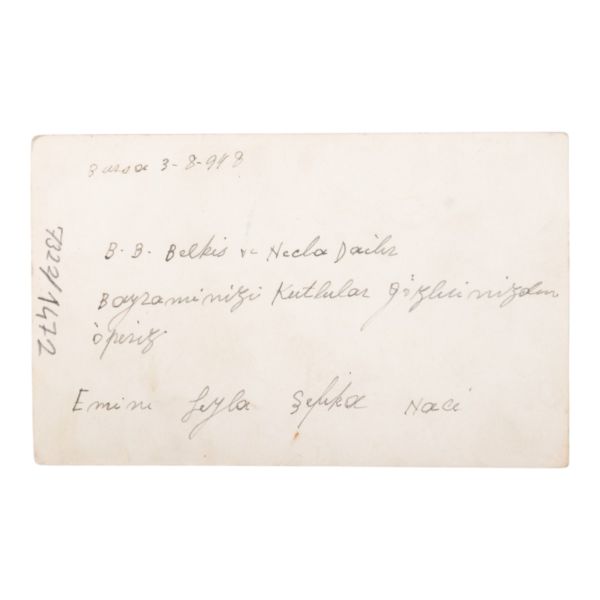 Bursa 3-8-948
B. B. Belkis ve Necla Dailır
Bayraminizi Kutlular gözlerinizden
öperiz
Emine Leyla Şefika Naci
7329/1472